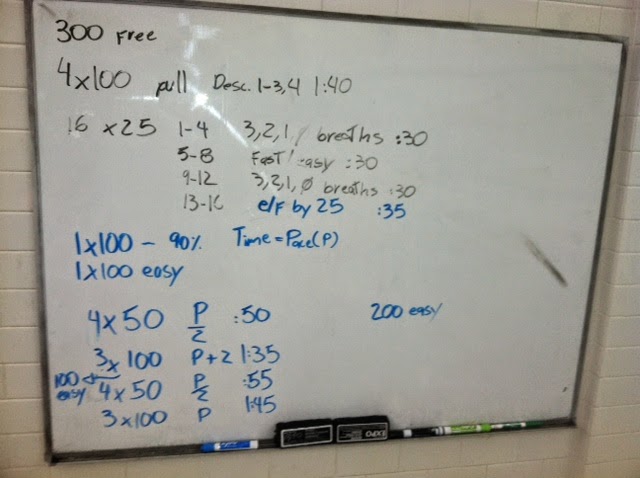 300 Free
4x100 pull Desc. 1-3,4 1:40
16 x 25 1-4 3,2,1, breaths :30
5-8 Fast/easy :30
9-12 3,2,1,Ø breaths :30
13-16 e/F by 25 :35
1x100 - 90% Time=Pace(P)
1x100 easy
4x50 P/2 :50 200 easy
3x100 P+2 1:35
100 easy
4x50 P/2 :55
3x100 P 1:45
EXPO